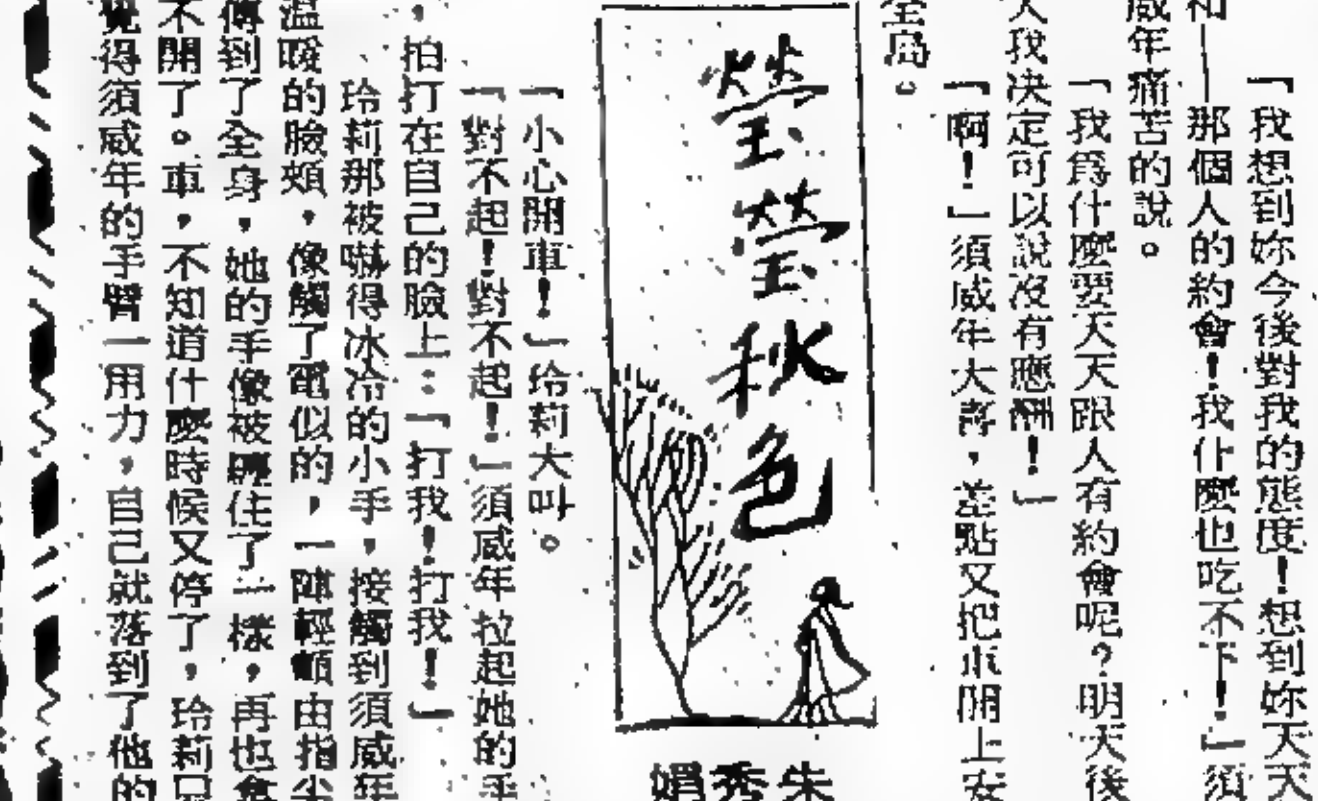 「我想到妳今後對我的態度！想到妳天天
和——那個人的約會！我什麼也吃不下！」須
威年痛苦的說。
「我爲什麼要天天跟人有約會呢？明天後
天我決定可以說沒有應酬！」
「啊！」須威年大喜，差點又把車開上安
全島。
瑩瑩秋色
朱秀娟
「小心開車！」玲莉大叫。
「對不起！對不起！」須威年拉起她的手
，拍打在自己的臉上：「打我！打我！」
玲莉那被嚇得冰冷的小手，接觸到須威年
溫暖的臉頰，像觸了電似的，一陣輕顫由指尖
傳到了全身，她的手像被轉住了一樣，再也拿
不開了。車，不知道什麼時候又停了，玲莉只
覺得須威年的手臂一用力，自己就落到了他的